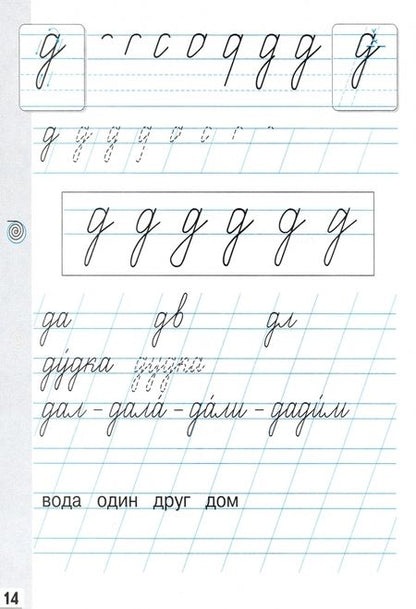 д с о д д д д
д д д д о с
д д д д д д
да дв дл
ду́дка дудка
дал – дала́ – да́ли – дади́м
вода один друг дом
14